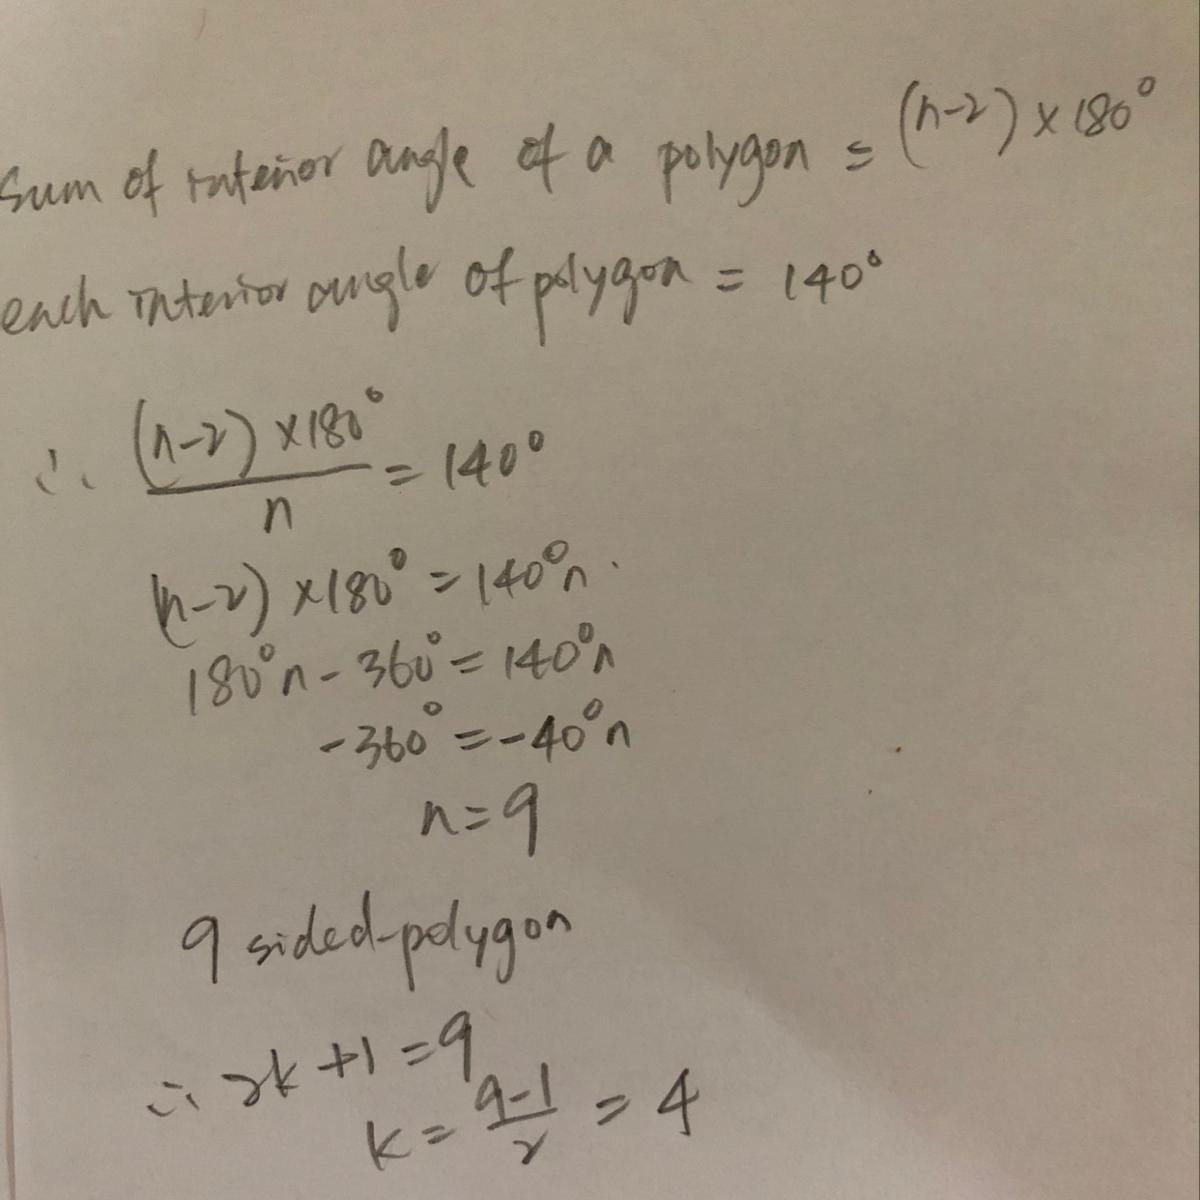 Sum of interior angle of a polygon = (n-2) × 180°
each interior angle of polygon = 140°
∴ (n-2) × 180° / n = 140°
(n-2) × 180° = 140°n.
180°n - 360° = 140°n
-360° = -40°n
n = 9
9 sided-polygon
∴ 2k + 1 = 9
k = 9-1 / 2 = 4